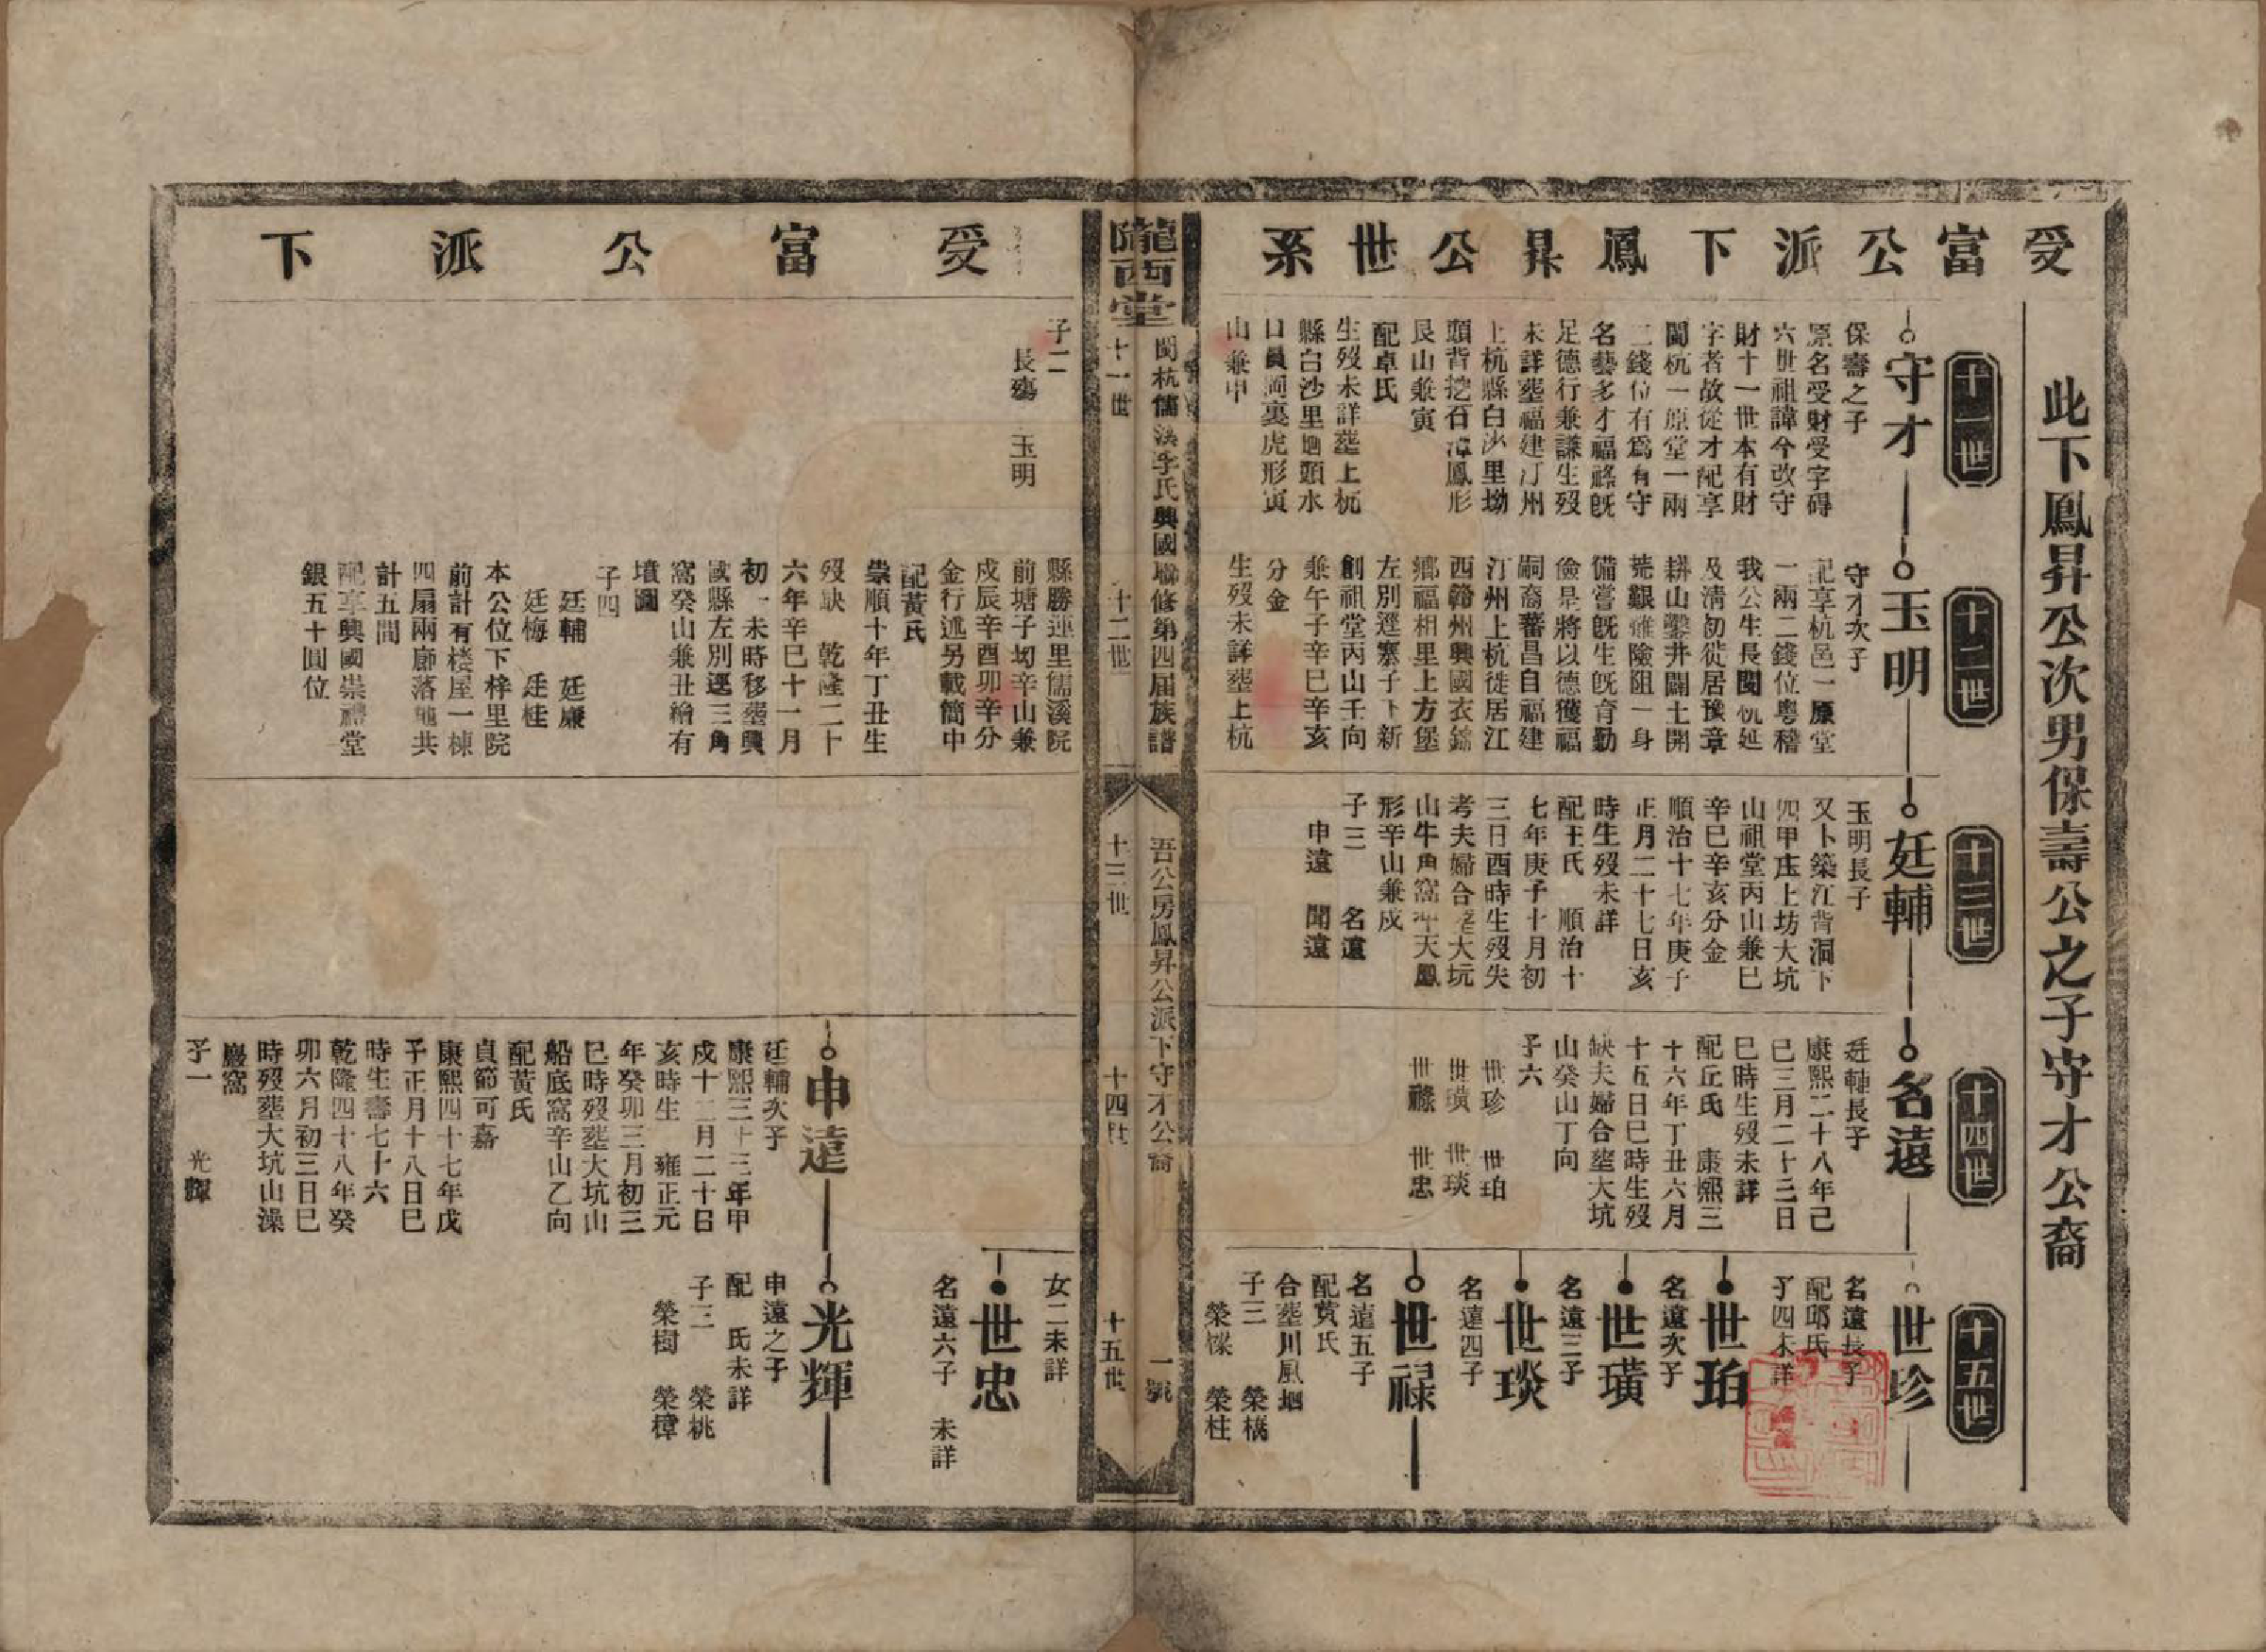 受富公派下鳳昇公世系
此下鳳昇公次男保壽公之子守才公裔
十一世
守才
保壽之子
原名受財受字碍
六世祖諱今改守
財十一世本有財
字者故從才配享
閩杭一原堂一兩
二錢位有爲有守
名藝多才福祿旣
足德行兼謙生歿
未詳塟福建汀州
上杭縣白沙里坳
頭背挖石 鳳形
艮山兼寅
配卓氏
生歿未詳塟上杭
縣白沙里廻頭水
口員崗裏虎形寅
山兼甲
十二世
玉明
守才次子
配享杭邑一原堂
一兩二錢位粵稽
我公生長閩杭延
及清初徙居豫章
耕山鑿井闢土開
荒艱難險阻一身
備嘗旣生旣育勤
儉是將以德獲福
嗣裔蕃昌自福建
汀州上杭徙居江
西贛州興國衣錦
鄉福相里上方堡
左別逕寨子下新
創祖堂丙山壬向
兼午子辛巳辛亥
分金
生歿未詳塟上杭
十三世
廷輔
玉明長子
又卜築江背洞下
四甲庄上坊大坑
山祖堂丙山兼巳
辛巳辛亥分金
順治十七年庚子
正月二十七日亥
時生歿未詳
配王氏 順治十
七年庚子十月初
三日酉時生歿失
考夫婦合塟大坑
山牛角窩冲天鳳
形辛山兼戍
子三 名遠
申遠 聞遠
十四世
名遠
廷輔長子
康熙二十八年己
巳三月二十三日
巳時生歿未詳
配丘氏 康熙三
十六年丁丑六月
十五日巳時生歿
缺夫婦合塟大坑
山癸山丁向
子六
世珍 世珀
世璜 世琰
世祿 世忠
十五世
世珍
名遠長子
配邱氏
子四未詳
世珀
名遠次子
世璜
名遠三子
世琰
名遠四子
世祿
名遠五子
配黄氏
合塟川風堌
子三 榮橋
榮 榮柱
隴西堂
閩杭儒溪李氏興國聯修第四届族譜
吾公房鳳昇公派下守才公裔
一號
十一世 十二世 十三世 十四世 十五世
受富公派下
子二
長殤 玉明
縣勝運里儒溪院
前塘子坳辛山兼
戍辰辛酉卯辛分
金行述另載簡中
配黃氏
崇順十年丁丑生
歿缺 乾隆二十
六年辛巳十一月
初一未時移塟興
國縣左別逕三角
窩癸山兼丑繪有
墳圖
子四
廷輔 廷廉
廷梅 廷桂
本公位下梓里院
前計有楼屋一棟
四扇兩廊落 共
計五間
配享興國崇禮堂
銀五十圓位
申遠
廷輔次子
康熙三十三年甲
戍十二月二十日
亥時生 雍正元
年癸卯三月初三
巳時歿塟大坑山
船底窩辛山乙向
配黃氏
貞節可嘉
康熙四十七年戊
子正月十八日巳
時生壽七十六
乾隆四十八年癸
卯六月初三日巳
時歿塟大坑山澡
巖窩
子一 光輝
女二未詳
世忠
名遠六子 未詳
光輝
申遠之子
配 氏未詳
子三 榮桃
榮樹 榮樟